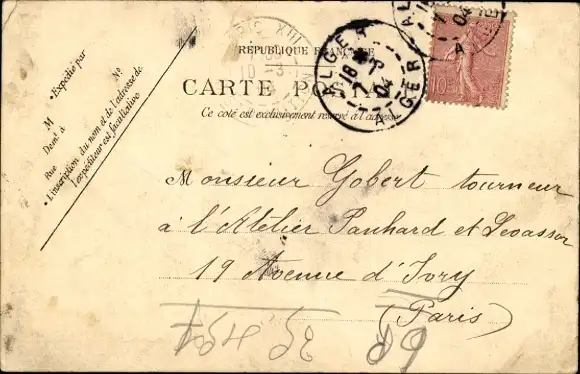 RÉPUBLIQUE FRANÇAISE
CARTE POSTALE
Ce côté est exclusivement réservé à l'adresse
Expédié par
M
N°
Demt à
Rue
L'inscription du nom et de l'adresse de
l'expéditeur est facultative
ALGER
ALGER
18
04
10
Monsieur Gobert tourneur
à l'Atelier Panhard et Levassor
19 Avenue d'Ivry
(Paris)